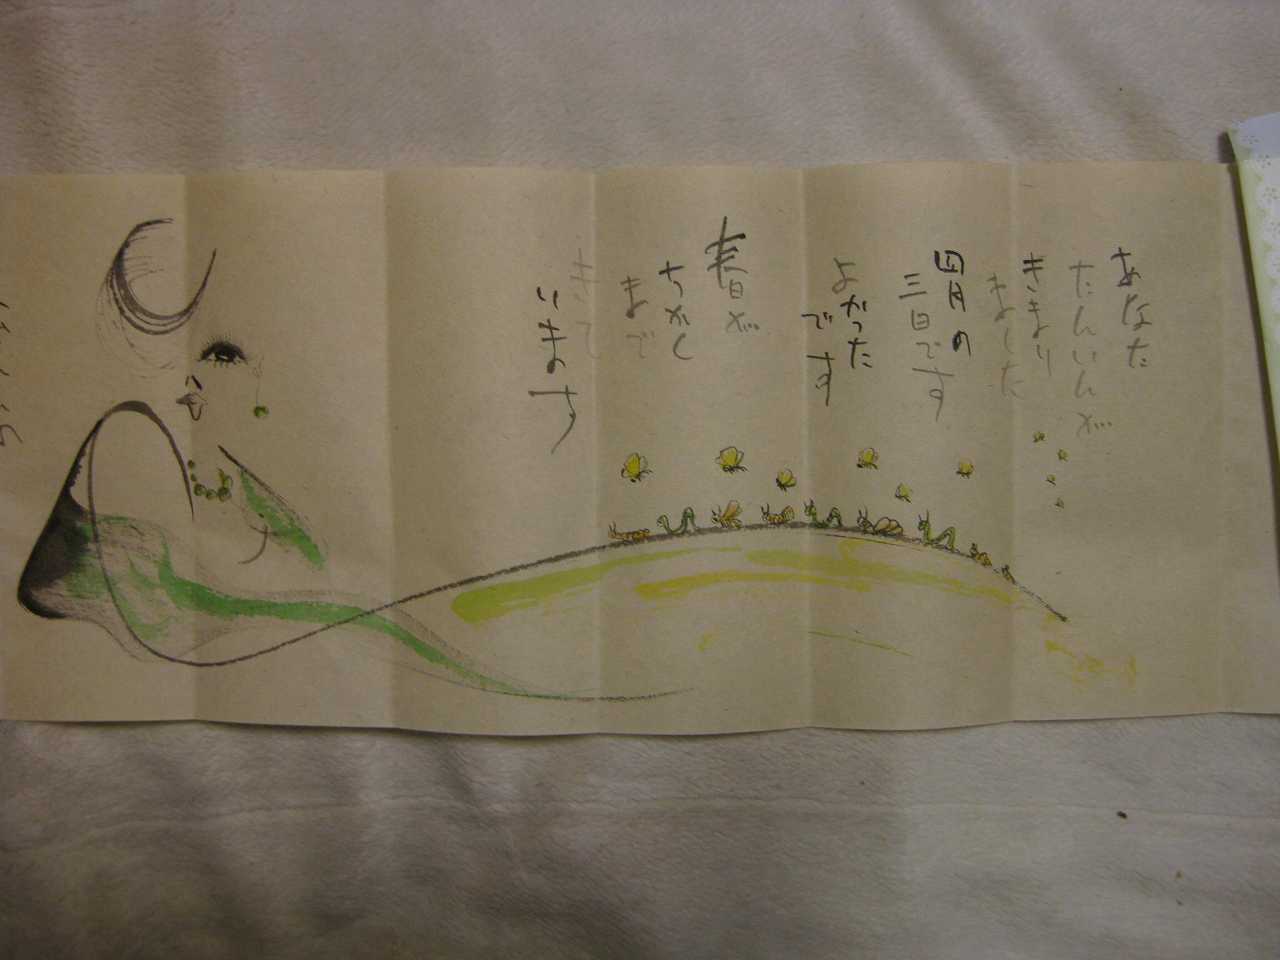 あなた
たんいんが
きまり
ました
四月の
三日です
よかった
です
春が
ちかく
まで
きて
います